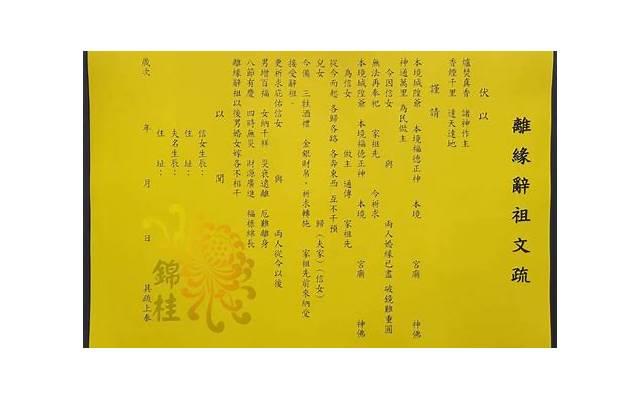 離緣辭祖文疏
伏以
爐焚真香　諸神作主
香煙千里　達天達地
謹請
本境城隍爺　本境福德正神　本境　宮廟　神佛
神通萬里　為民做主
今因信女　與　兩人婚緣已盡　破鏡難重圓
無法再奉祀　家祖先　今祈求
本境城隍爺　本境福德正神　本境　宮廟　神佛
為信女　做主　通傳　家祖先
從今而起　各歸各路　各奔東西　互不干預
兒女　歸（夫家）（信女）
今備　三牲酒禮　金銀財帛，祈求轉施　家祖先前來納受
接受辭祖．
更祈求庇佑信女　與　兩人從今以後
男增百福　女納千祥　災衰遠離　厄難離身
八節有慶　四時無災　財源廣進　福祿綿長
離緣辭祖以後男婚女嫁各不相干
以　聞
信女生辰：
住　址：
夫名生辰：
住　址：
歲次　年　月　日　具疏上奉
錦桂